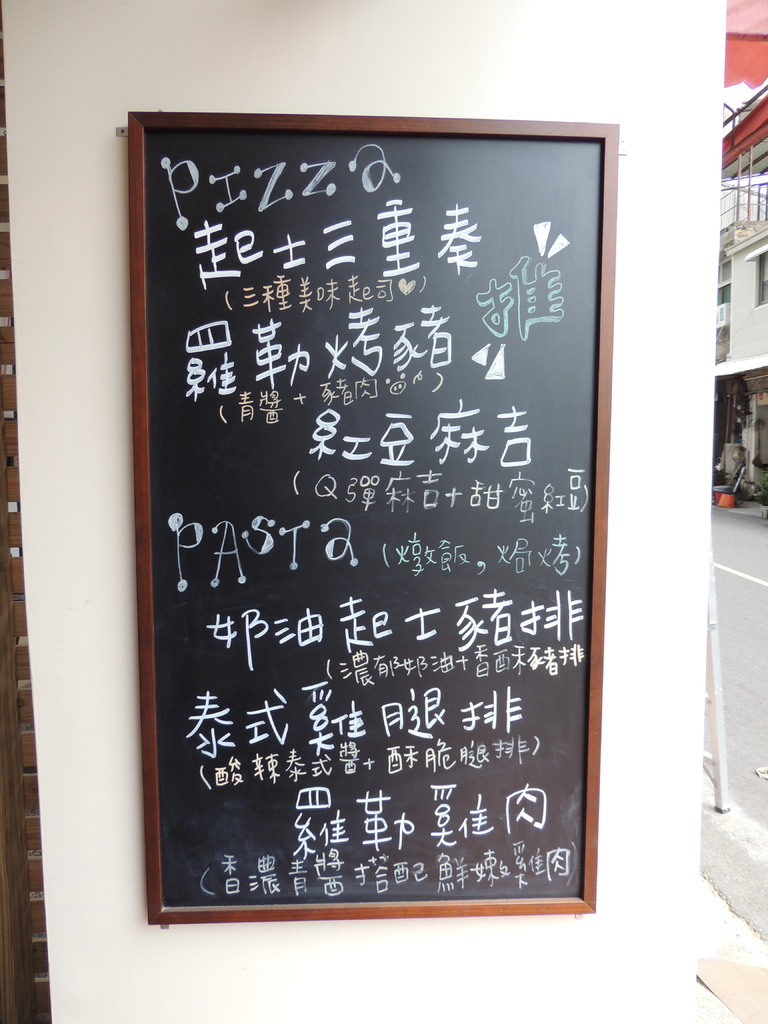 PIZZA
起士三重奏
(三種美味起司♡)
推
羅勒烤豬
(青醬+豬肉)
紅豆麻吉
(Q彈麻吉+甜蜜紅豆)
PASTA (燉飯,焗烤)
奶油起士豬排
(濃郁奶油+香酥豬排)
泰式雞腿排
(酸辣泰式醬+酥脆腿排)
羅勒雞肉
(香濃青醬搭配鮮嫩雞肉)